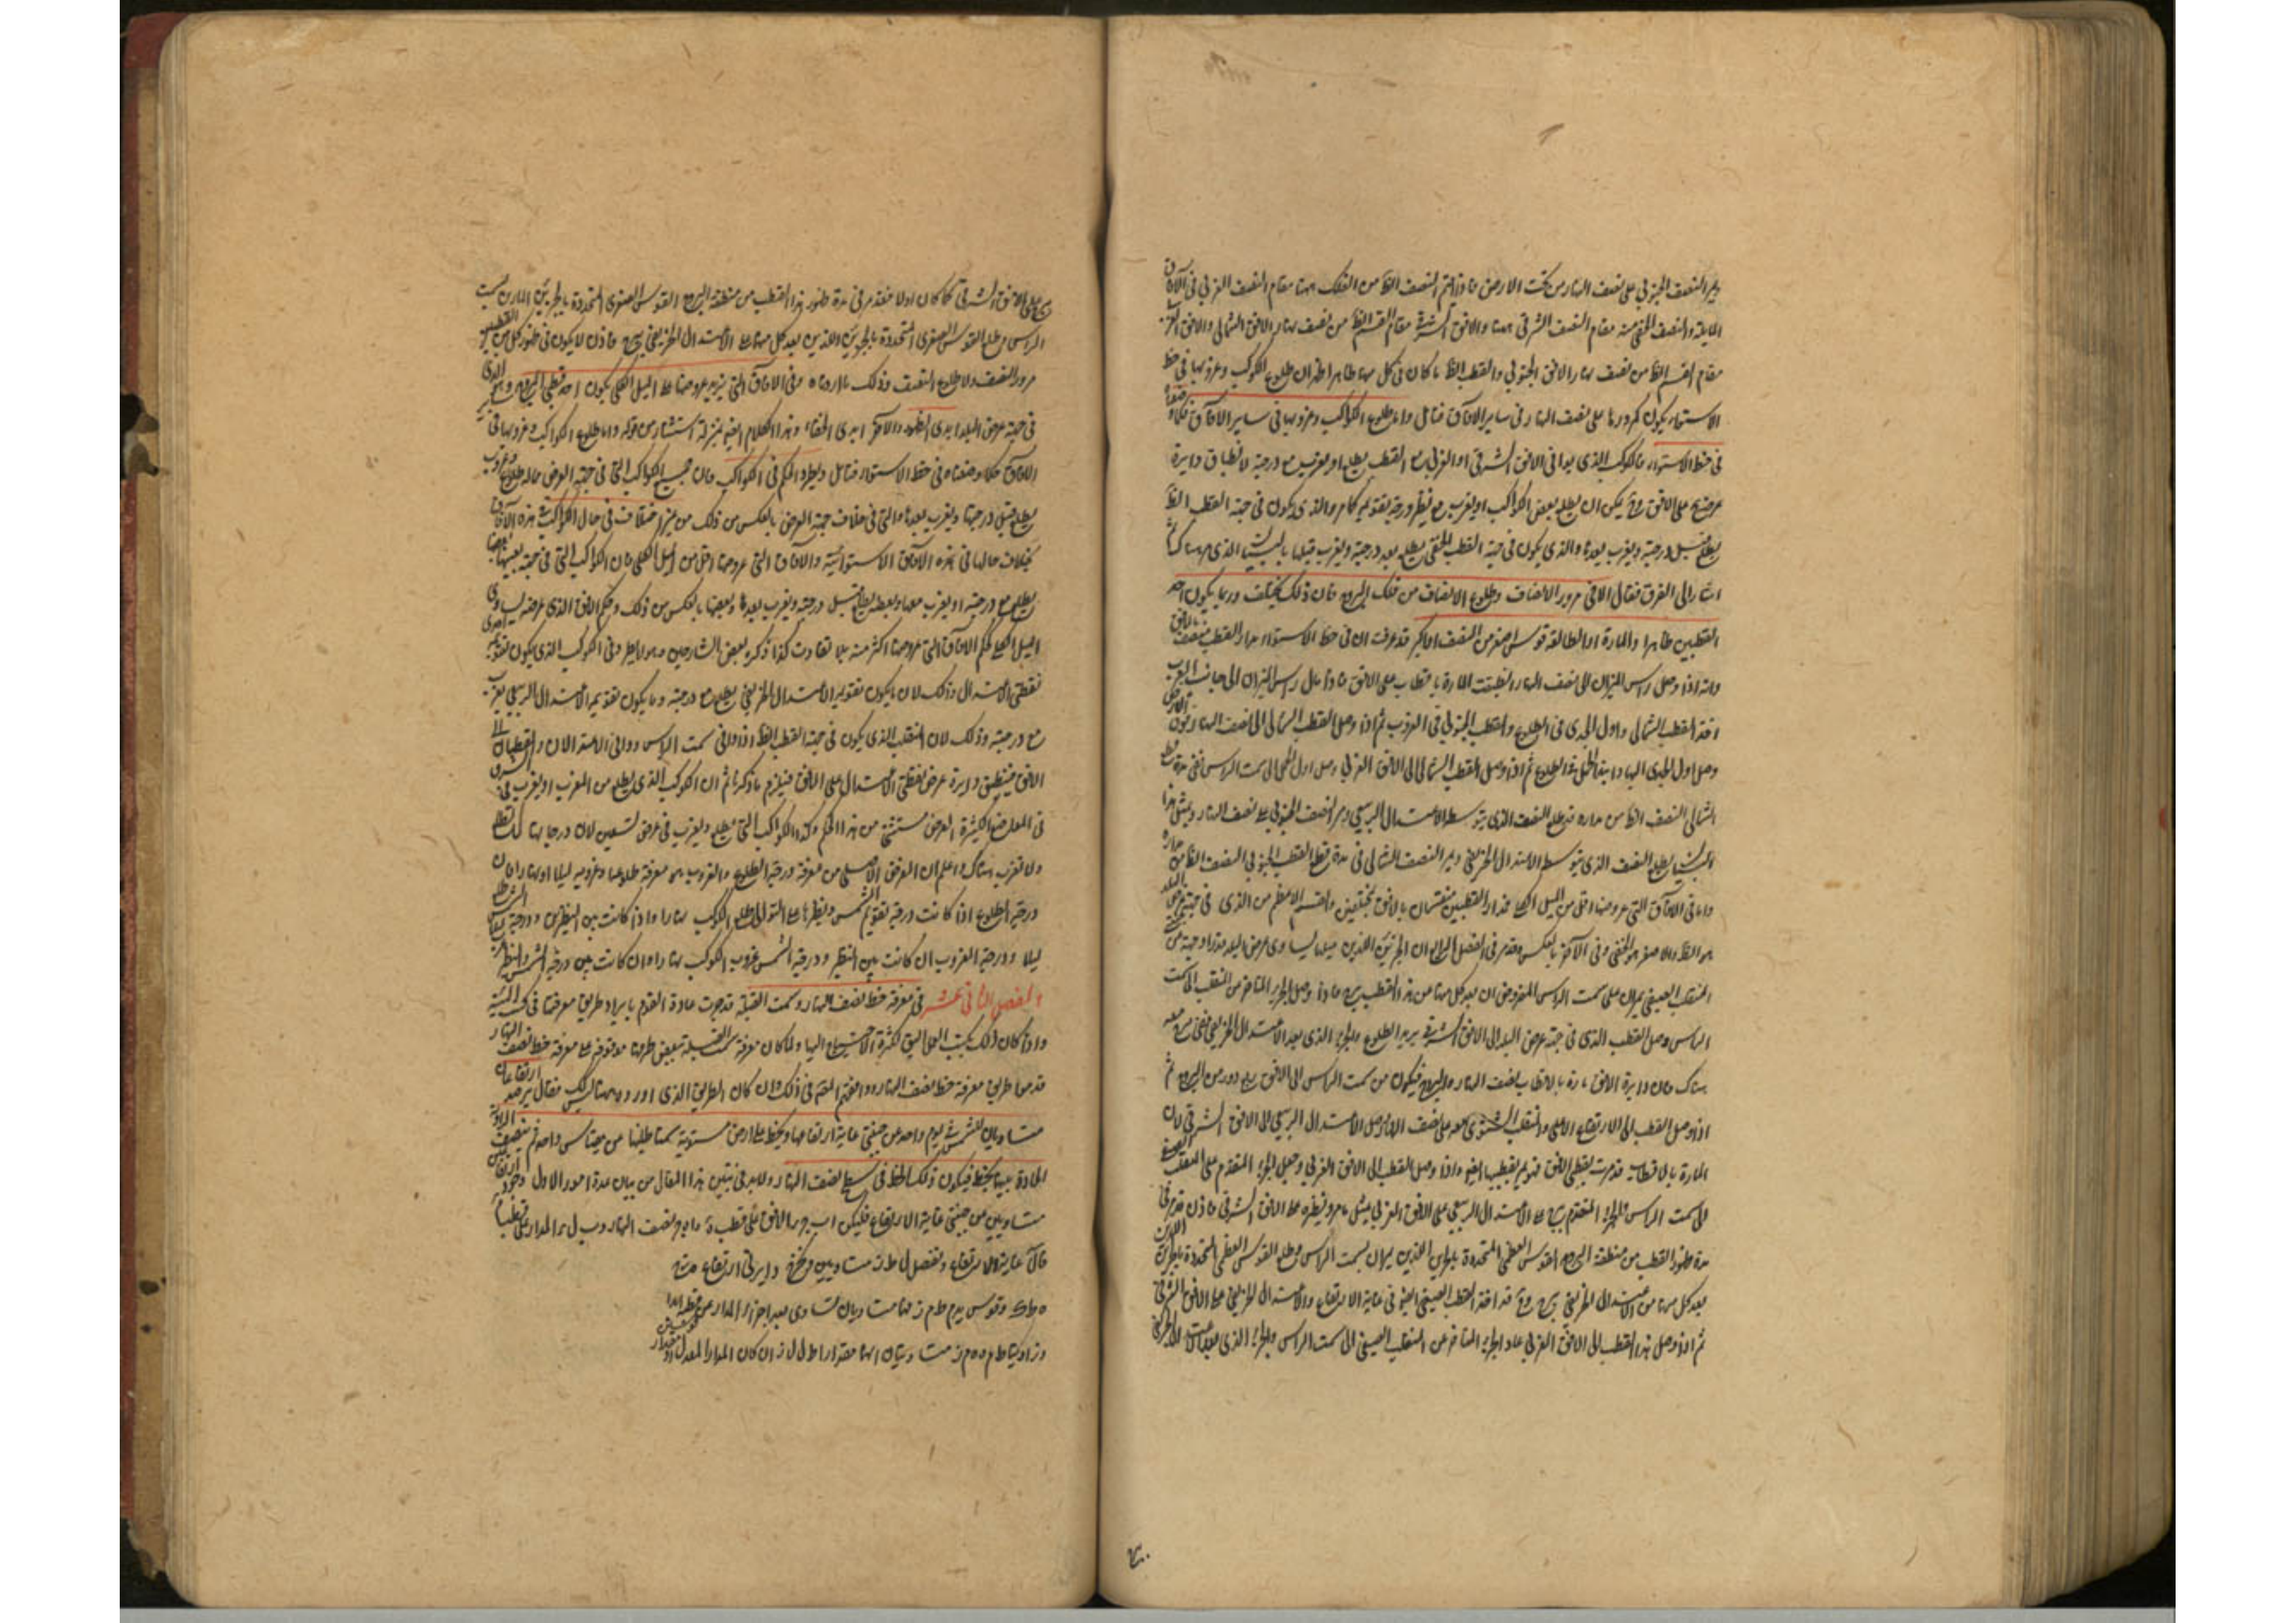 ويمر النصف الجنوبي على نصف النهار من تحت الارض فاذا لم النصف الظا من الفلك ههنا مقام النصف الغربي في الآفاق
المايلة والنصف الخفي منه مقام النصف الشرقي ههنا والافق الشرقي مقام القسم الظا من نصف نهار الافق الشمالي والافق الغربي
مقام القسم الظا من نصف نهار الافق الجنوبي والقطب الظا ما كان في كل منهما ظاهرا ان طلوع الكواكب وغروبها في خط
الاستواء يكون كمرورها على نصف النهار في ساير الافاق فتامل واما طلوع الكواكب وغروبها في ساير الافاق فكما وصفناه
في خط الاستواء فالكوكب الذي يوافي الافق الشرقي او الغربي مع القطب يطلع او يغرب مع درجته لانطباق دايرة
عرضه على الافق وح يمكن ان يطلع بعض الكواكب او يغرب مع نظير درجة تقويمه كما مر والذي يكون في جهة القطب الظا
يطلع قبل درجته ويغرب بعدها والذي يكون في جهة القطب الخفي يطلع بعد درجته ويغرب قبلها بالسبب الذي مر هناك ثم
اشار الى الفرق فقال الا في مرور الانصاف وطلوع الانصاف من فلك البروج فان ذلك يختلف وربما يكون احد
القطبين ظاهرا والمارة او الطالعة قوس اصغر من النصف او اكبر قد عرفت ان في خط الاستواء مدار القطب منصف بالافق
وانه اذا وصل راس الميزان الى نصف النهار انطبقت المارة بالاقطاب على الافق فاذا مال راس الميزان الى جانب المغرب
اخذ القطب الشمالي واول الجدي في الطلوع والقطب الجنوبي في الغروب ثم اذا وصل القطب الشمالي الى نصف النهار
وصل اول الجدي اليها وابتدا الحمل في الطلوع ثم اذا وصل القطب الشمالي الى الافق الغربي وصل اول الحمل الى سمت الراس ففي مدة قطع
الشمالي النصف الظا من مداره قد طلع النصف الذي يتوسطه الاعتدال الربيعي ومر النصف الجنوبي على نصف النهار وبمثل هذا
البيان يطلع النصف الذي يتوسطه الاعتدال الخريفي ويمر النصف الشمالي في مدة قطع القطب الجنوبي النصف الظا من مداره
واما في الافاق التي عروضها اقل من الميل الكلي فمدار القطبين منقسمان بالافق بمختلفين والقسم الاعظم من الذي في جهة عرض البلد
هو الظا والاصغر هو الخفي وفي الآخر بالعكس وقد مر في الفصل الرابع ان الجزئين الذين ميلهما يساوي عرض البلد قدرا وجهة
المنقلب الصيفي يمران على سمت الراس المفروض ان بعد كل منهما من هذا القطب فاذا وصل الجزء المتاخر من المنقلب الى سمت
الراس وصل القطب الذي في جهة عرض البلد الى الافق الشرقي يريد الطلوع والجزء الذي بعد الاعتدال الخريفي
هناك فان دايرة الافق مارة بالاقطاب لنصف النهار والبروج فيكون من سمت الراس الى الافق ربع دور من البروج ثم
اذا وصل القطب الى الارتفاع الاعلى والمنقلب الشتوي معه على نصف النهار وصل الاعتدال الربيعي الى الافق الشرقي لان
المارة بالاقطاب قد مرت بقطبي الافق فهو يمر بقطبيها ايضا واذا وصل القطب الى الافق الغربي وصل الجزء المتقدم على المنقلب
الى سمت الراس والجزء المتقدم على الاعتدال الربيعي على الافق الغربي بمثل ما مر ونظيره على الافق الشرقي فاذن قد مر في
مدة ظهور القطب من منطقة البروج القوس العظمى المتحددة بالجزئين الذين يمران بسمت الراس وطلع القوس العظمى المتحددة بالجزئين
بعد كل منهما من الاعتدال الخريفي وح قد اخذ القطب الصيفي ايضا في غاية الارتفاع والاعتدال الخريفي على الافق الشرقي
ثم اذا وصل هذا القطب الى الافق الغربي عاد الجزء المتاخر عن المنقلب الصيفي الى سمت الراس والجزء الذي بعد الاعتدال الخريفي
على الافق الشرقي كما كان اولا فقد مر في مدة ظهور هذا القطب من منطقة البروج القوس الصغرى المتحددة بالجزئين المارين بسمت
الراس وطلع القوس الصغرى المتحددة بالجزئين الذين بعد كل منهما عن الاعتدال الخريفي فاذن لا يكون في ظهور كل من القطبين
مرور النصف ولا طلوع النصف وذلك ما اردناه وفي الافاق التي يزيد عروضها على الميل الكلي يكون احد قطبي البروج وهو الذي
في جهة عرض البلد ابدي الظهور والآخر ابدي الخفاء وهذا الكلام ايضا بمنزلة استثناء من قوله واما طلوع الكواكب وغروبها في
الافاق فكما وصفناه في خط الاستواء فتامل ويطرد الحكم في الكواكب فان جميع الكواكب التي في جهة العرض مما له طلوع وغروب
يطلع قبل درجتها ويغرب بعدها والتي في خلاف جهة العرض بالعكس من ذلك من غير اختلاف في حال الكواكب في هذه الآفاق
بخلاف حالها في هذه الآفاق الاستوائية والآفاق التي عروضها اقل من الميل الكلي فان الكواكب التي في جهة بعينها بعضها
يطلع مع درجته او يغرب معها وبعضه يطلع قبل درجته ويغرب بعدها وبعضها بالعكس من ذلك وحكم الافق الذي عرضه يساوي
الميل الكلي حكم الافاق التي عروضها اكثر منه بلا تفاوت كذا ذكره بعض الشارحين وهو لا يطرد في الكوكب الذي يكون تقويمه احدى
نقطتي الاعتدال وذلك لان ما يكون تقويمه الاعتدال الخريفي يطلع مع درجته وما يكون تقويمه الاعتدال الربيعي يغرب
مع درجته وذلك لان المنقلب الذي يكون في جهة القطب الظا اذا وافى سمت الراس ووافى الاعتدالان والقطبان
الافق فينطبق دايرة عرض نقطتي الاعتدال على الافق فيلزم ما ذكرنا ثم ان الكوكب الذي يطلع من المغرب او يغرب في الشرق
في المواضع الكثيرة العرض مستثنى من هذا الحكم وكذا الكواكب التي يطلع ويغرب في عرض تسعين لان درجاتها لا تطلع
ولا تغرب هناك واعلم ان الغرض الاصلي من معرفة درجة الطلوع والغروب هو معرفة طلوعها وغروبه ليلا او نهارا فان
درجة الطلوع اذا كانت درجة تقويم الشمس ونظيرها على التوالي طلع الكوكب نهارا واذا كانت بين النظير ودرجة الشمس طلع
ليلا ودرجة الغروب ان كانت بين النظير ودرجة الشمس غروب الكوكب نهارا وان كانت بين درجة الشمس والنظير
الفصل الثاني عشر في معرفة خط نصف النهار وسمت القبلة قد جرت عادة القوم بايراد طريق معرفتها في كتب الهيئة
واذ كان ذلك بكتب العمل اليق لكثرة الاحتياج اليها ولما كان معرفة سمت القبلة ببعض طرقها موقوفة على معرفة خط نصف النهار
قدم طريق معرفة خط نصف النهار ووافق القوم في ذلك وان كان الطريق الذي اورده ههنا ليس كذلك فقال يرصد ارتفاعان
متساويان للشمس في يوم واحد عن جنبتي غاية ارتفاعها ويخط على ارض مستوية سمتا ظليهما من مقياس واحد ثم ينصف الزاوية
الحادثة بينهما بخط فيكون ذلك الخط في سطح نصف النهار ولا بد في تبيين هذا المقال من بيان عدة امور الاول وجود ارتفاعين
متساويين من جنبتي غاية الارتفاع فليكن ا ب ج د الافق على قطب ه و ا ه ج نصف النهار و ب ل م د المدار على قطب
قال غاية الارتفاع ونفصل ل ط ل ز متساويين ونخرج دايرتي ارتفاع
ه ط ك وقوس يدم ط م ز منها متساويان لتساوي بعد اجزاء المدار عن قطبه ابدا
وزاويتا ط م ه ه م ز متساويتان لانهما مقدارا ط ل ل ز ان كان المدار المعدل